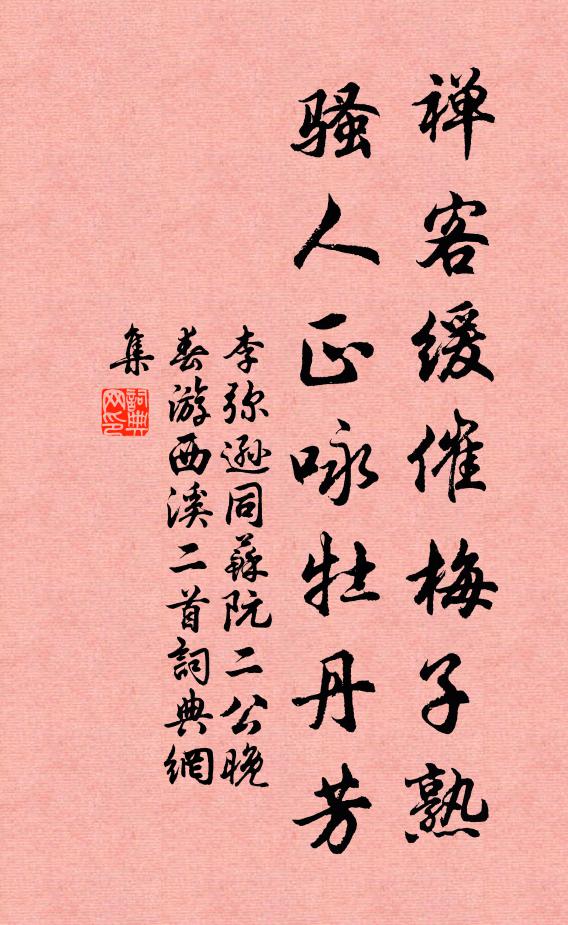 禅客缓催梅子熟
骚人正咏牡丹芳
李弥逊同蘇阮二公晚
春游西溪二首詞典網
集
詞典网印